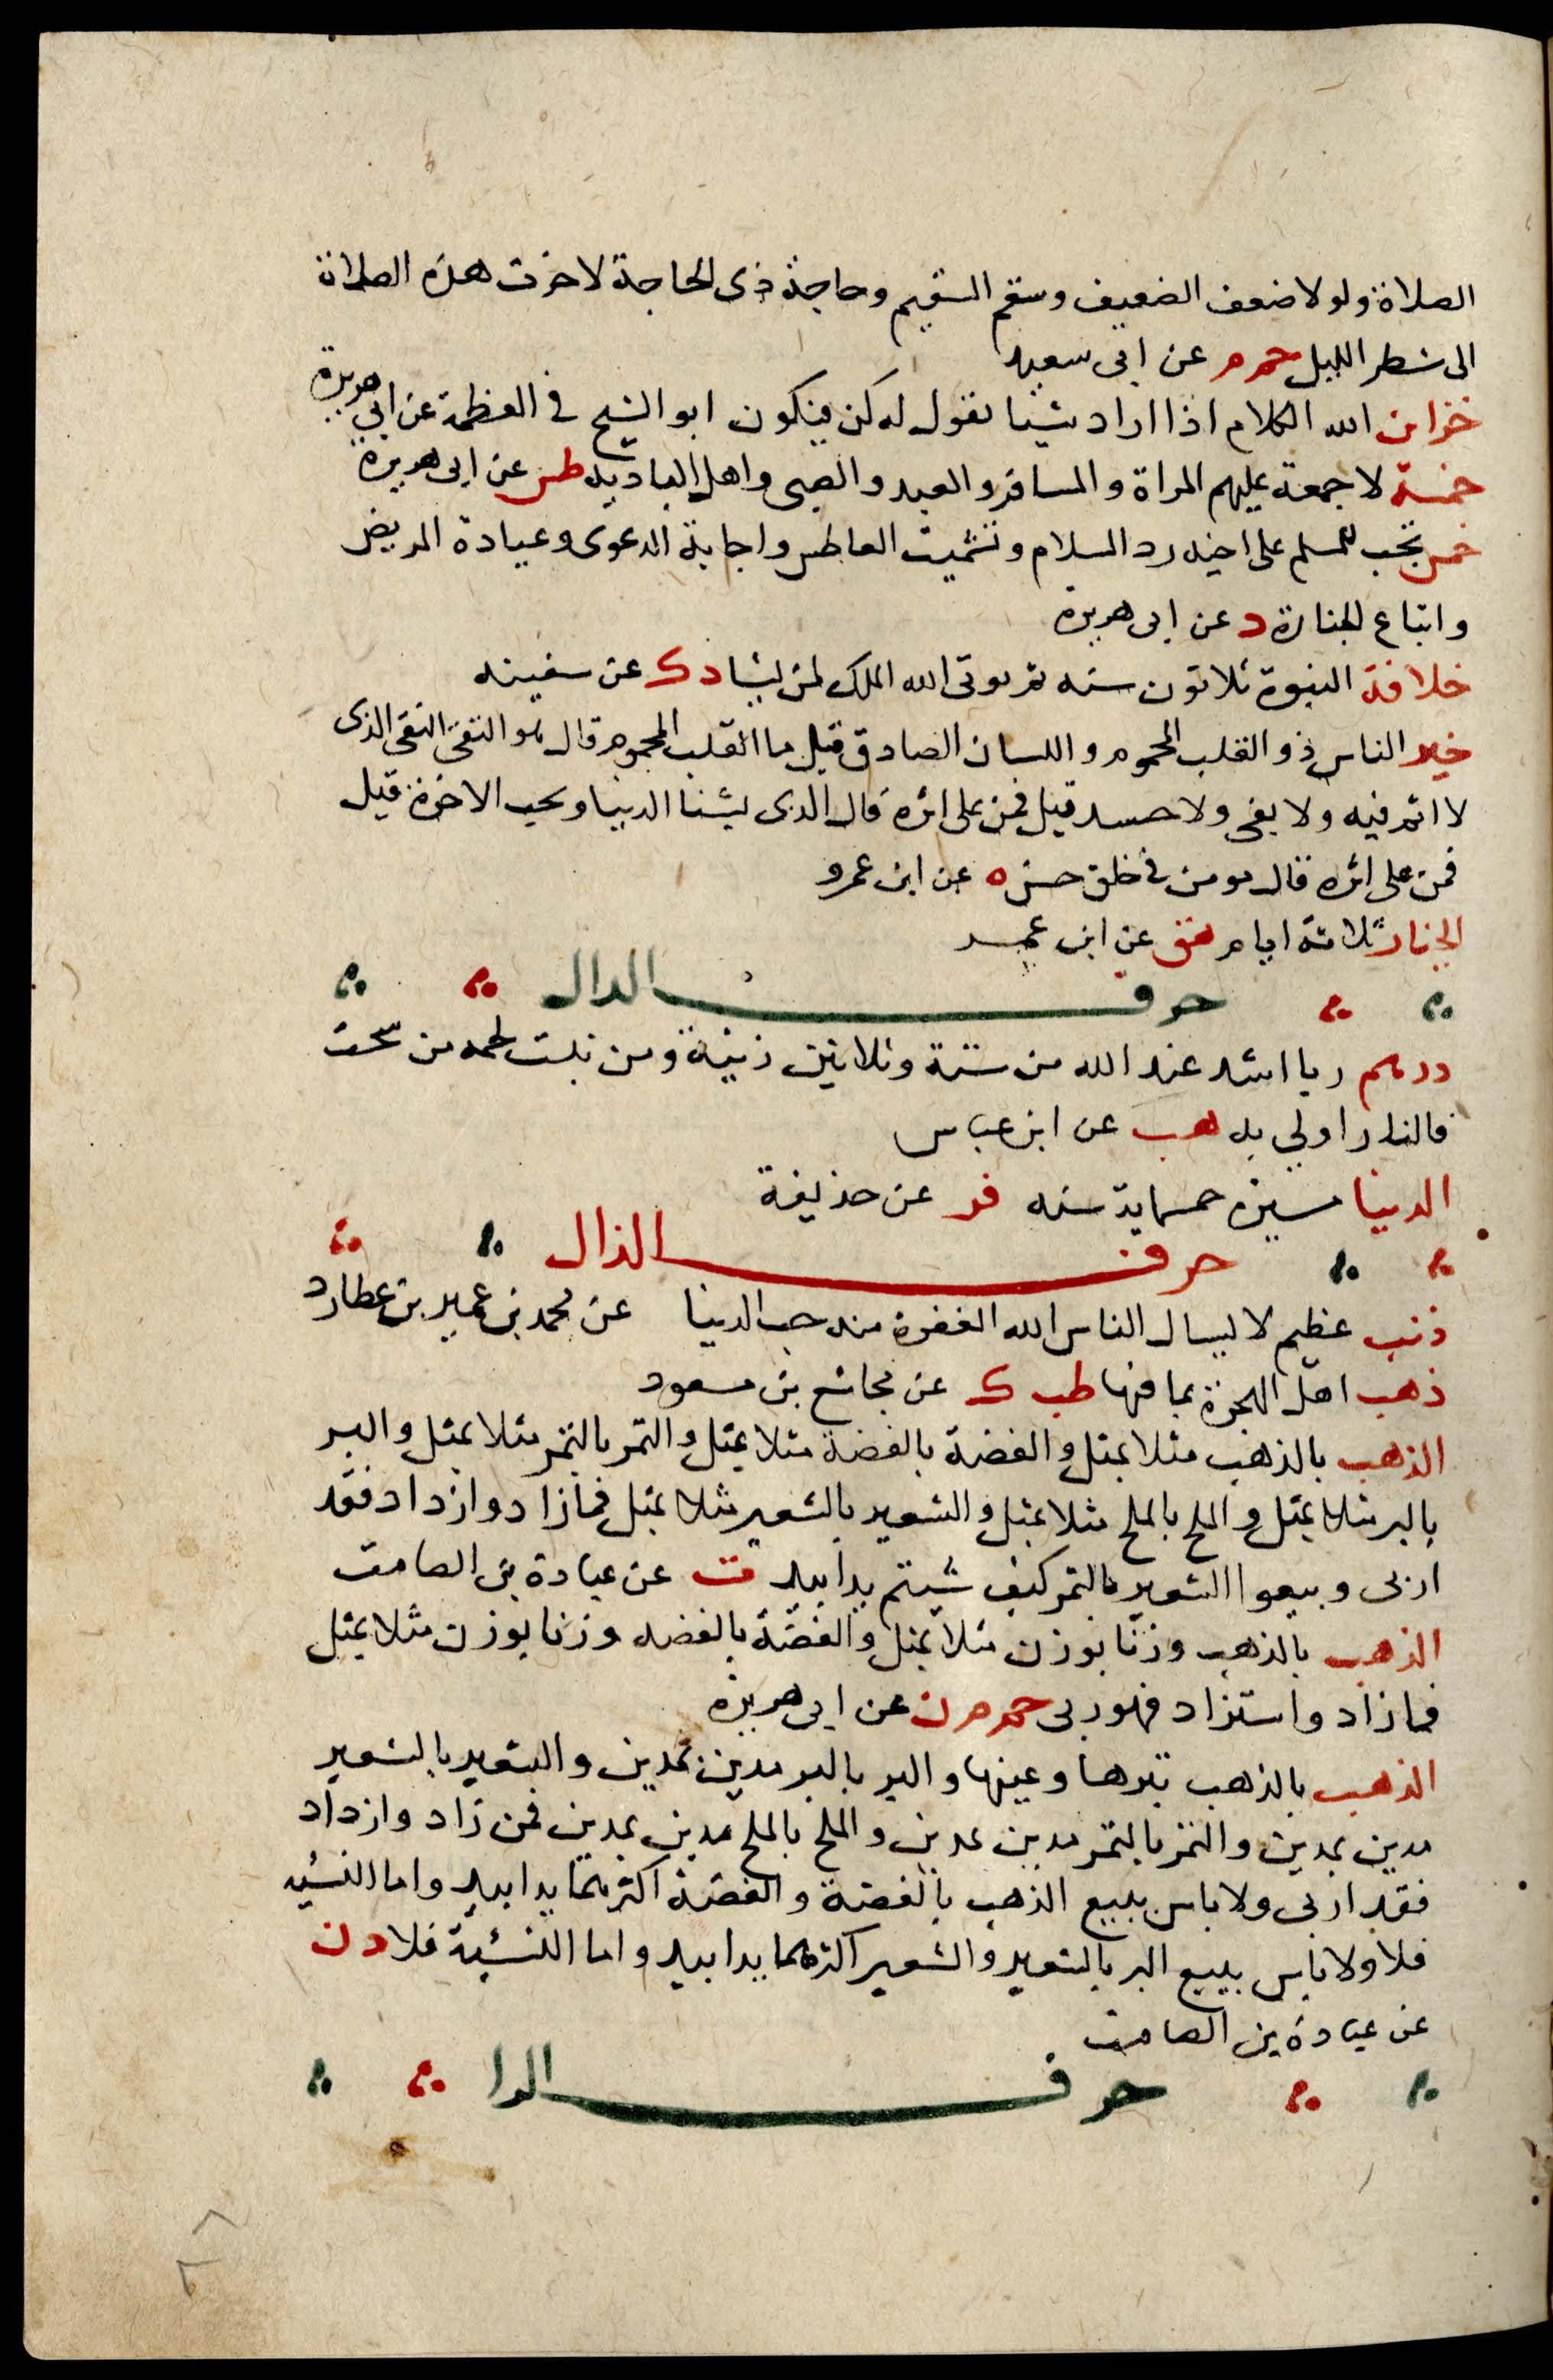 الصلاة ولولا ضعف الضعيف وسقم السقيم وحاجة ذى الحاجة لاخرت هذه الصلاة
الى شطر الليل حم م عن ابى سعيد
خزاين الله الكلام اذا اراد شيئا يقول له كن فيكون ابو الشيخ فى العظمة عن ابى هريرة
خمسة لا جمعة عليهم المراة والمسافر والعبد والصبى واهل الباديه طس عن ابى هريرة
خمس تجب للمسلم على اخيه رد السلام وتشميت العاطس واجابة الدعوى وعيادة المريض
واتباع الجنازة د عن ابى هريرة
خلافة النبوة ثلاثون سنه ثم يوتى الله الملك لمن يشا د ك عن سفينه
خير الناس ذو القلب المحموم واللسان الصادق قيل ما القلب المحموم قال هو التقى النقى الذى
لا اثم فيه ولا بغى ولا حسد قيل فمن على اثره قال الذى يشنا الدنيا ويحب الاخرة قيل
فمن على اثره قال مومن فى خلق حسن ه عن ابن عمرو
الخيار ثلاثة ايام هق عن ابن عمر
حرف الدال
درهم ربا اشد عند الله من ستة وثلاثين زنية ومن نبت لحمه من سحت
فالنار اولى به هب عن ابن عباس
الدنيا مسيرة خمسماية سنه فر عن حذيفة
حرف الذال
ذنب عظيم لا يسال الناس الله المغفرة منه حب الدنيا عن محمد بن عمير بن عطارد
ذهب اهل الهجرة بما فيها طب ك عن مجاشع بن مسعود
الذهب بالذهب مثلا بمثل والفضة بالفضة مثلا بمثل والتمر بالتمر مثلا بمثل والبر
بالبر مثلا بمثل والملح بالملح مثلا بمثل والشعير بالشعير مثلا بمثل فما زاد وازداد فقد
اربى وبيعوا الشعير بالتمر كيف شيتم يدا بيد ت عن عبادة بن الصامت
الذهب بالذهب وزنا بوزن مثلا بمثل والفضة بالفضه وزنا بوزن مثلا بمثل
فما زاد واستزاد فهو ربى حم م ن عن ابى هريرة
الذهب بالذهب تبرها وعينها والبر بالبر مدين بمدين والشعير بالشعير
مدين بمدين والتمر بالتمر مدين بمدين والملح بالملح مدين بمدين فمن زاد وازداد
فقد اربى ولا باس ببيع الذهب بالفضة والفضة اكثرهما يدا بيد واما النسئيه
فلا ولا باس ببيع البر بالشعير والشعير اكثرهما يدا بيد واما النسئية فلا د ن
عن عبادة بن الصامت
حرف الرا